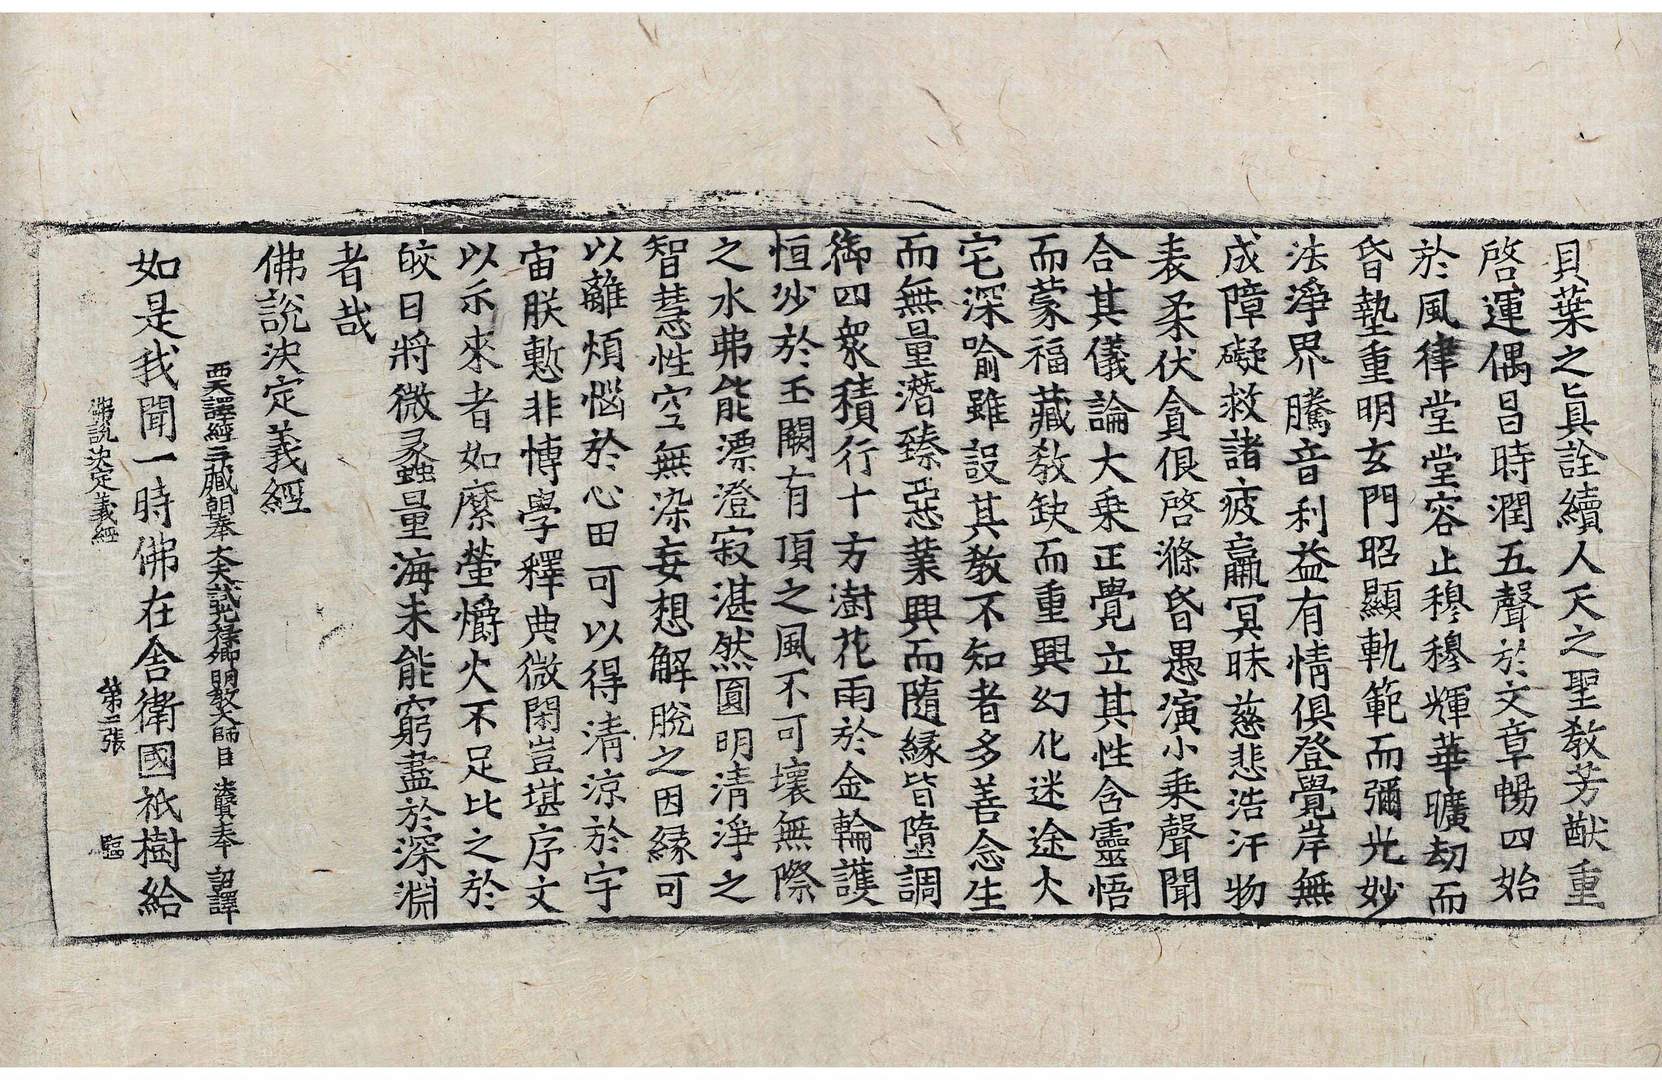 貝葉之旨具詮續人天之聖教芳猷重
啓運偶昌時潤五聲於文章暢四始
於風律堂堂容止穆穆輝華曠劫而
昏墊重明玄門昭顯軌範而彌光妙
法淨界騰音利益有情俱登覺岸無
成障礙救諸疲羸冥昧慈悲浩汗物
表柔伏貪佷啓滌昏愚演小乗聲聞
合其儀論大乗正覺立其性含靈悟
而蒙福藏教缺而重興幻化迷途火
宅深喻雖設其教不知者多善念生
而無量潛臻惡業興而隨緣皆墮調
御四衆積行十方澍花雨於金輪護
恒沙於玉闕有頂之風不可壞無際
之水弗能漂澄寂湛然圓明清淨之
智慧性空無染妄想解脫之因緣可
以離煩惱於心田可以得清涼於宇
宙朕慙非愽學釋典微閑豈堪序文
以示來者如縻螢爝火不足比之於
皎日將微蠡量海未能窮盡於深淵
者哉
佛說決定義經
西天譯經三藏朝奉大夫試光祿卿明教大師臣法賢奉 詔譯
如是我聞一時佛在舍衛國祇樹給
佛說決定義經 第二張